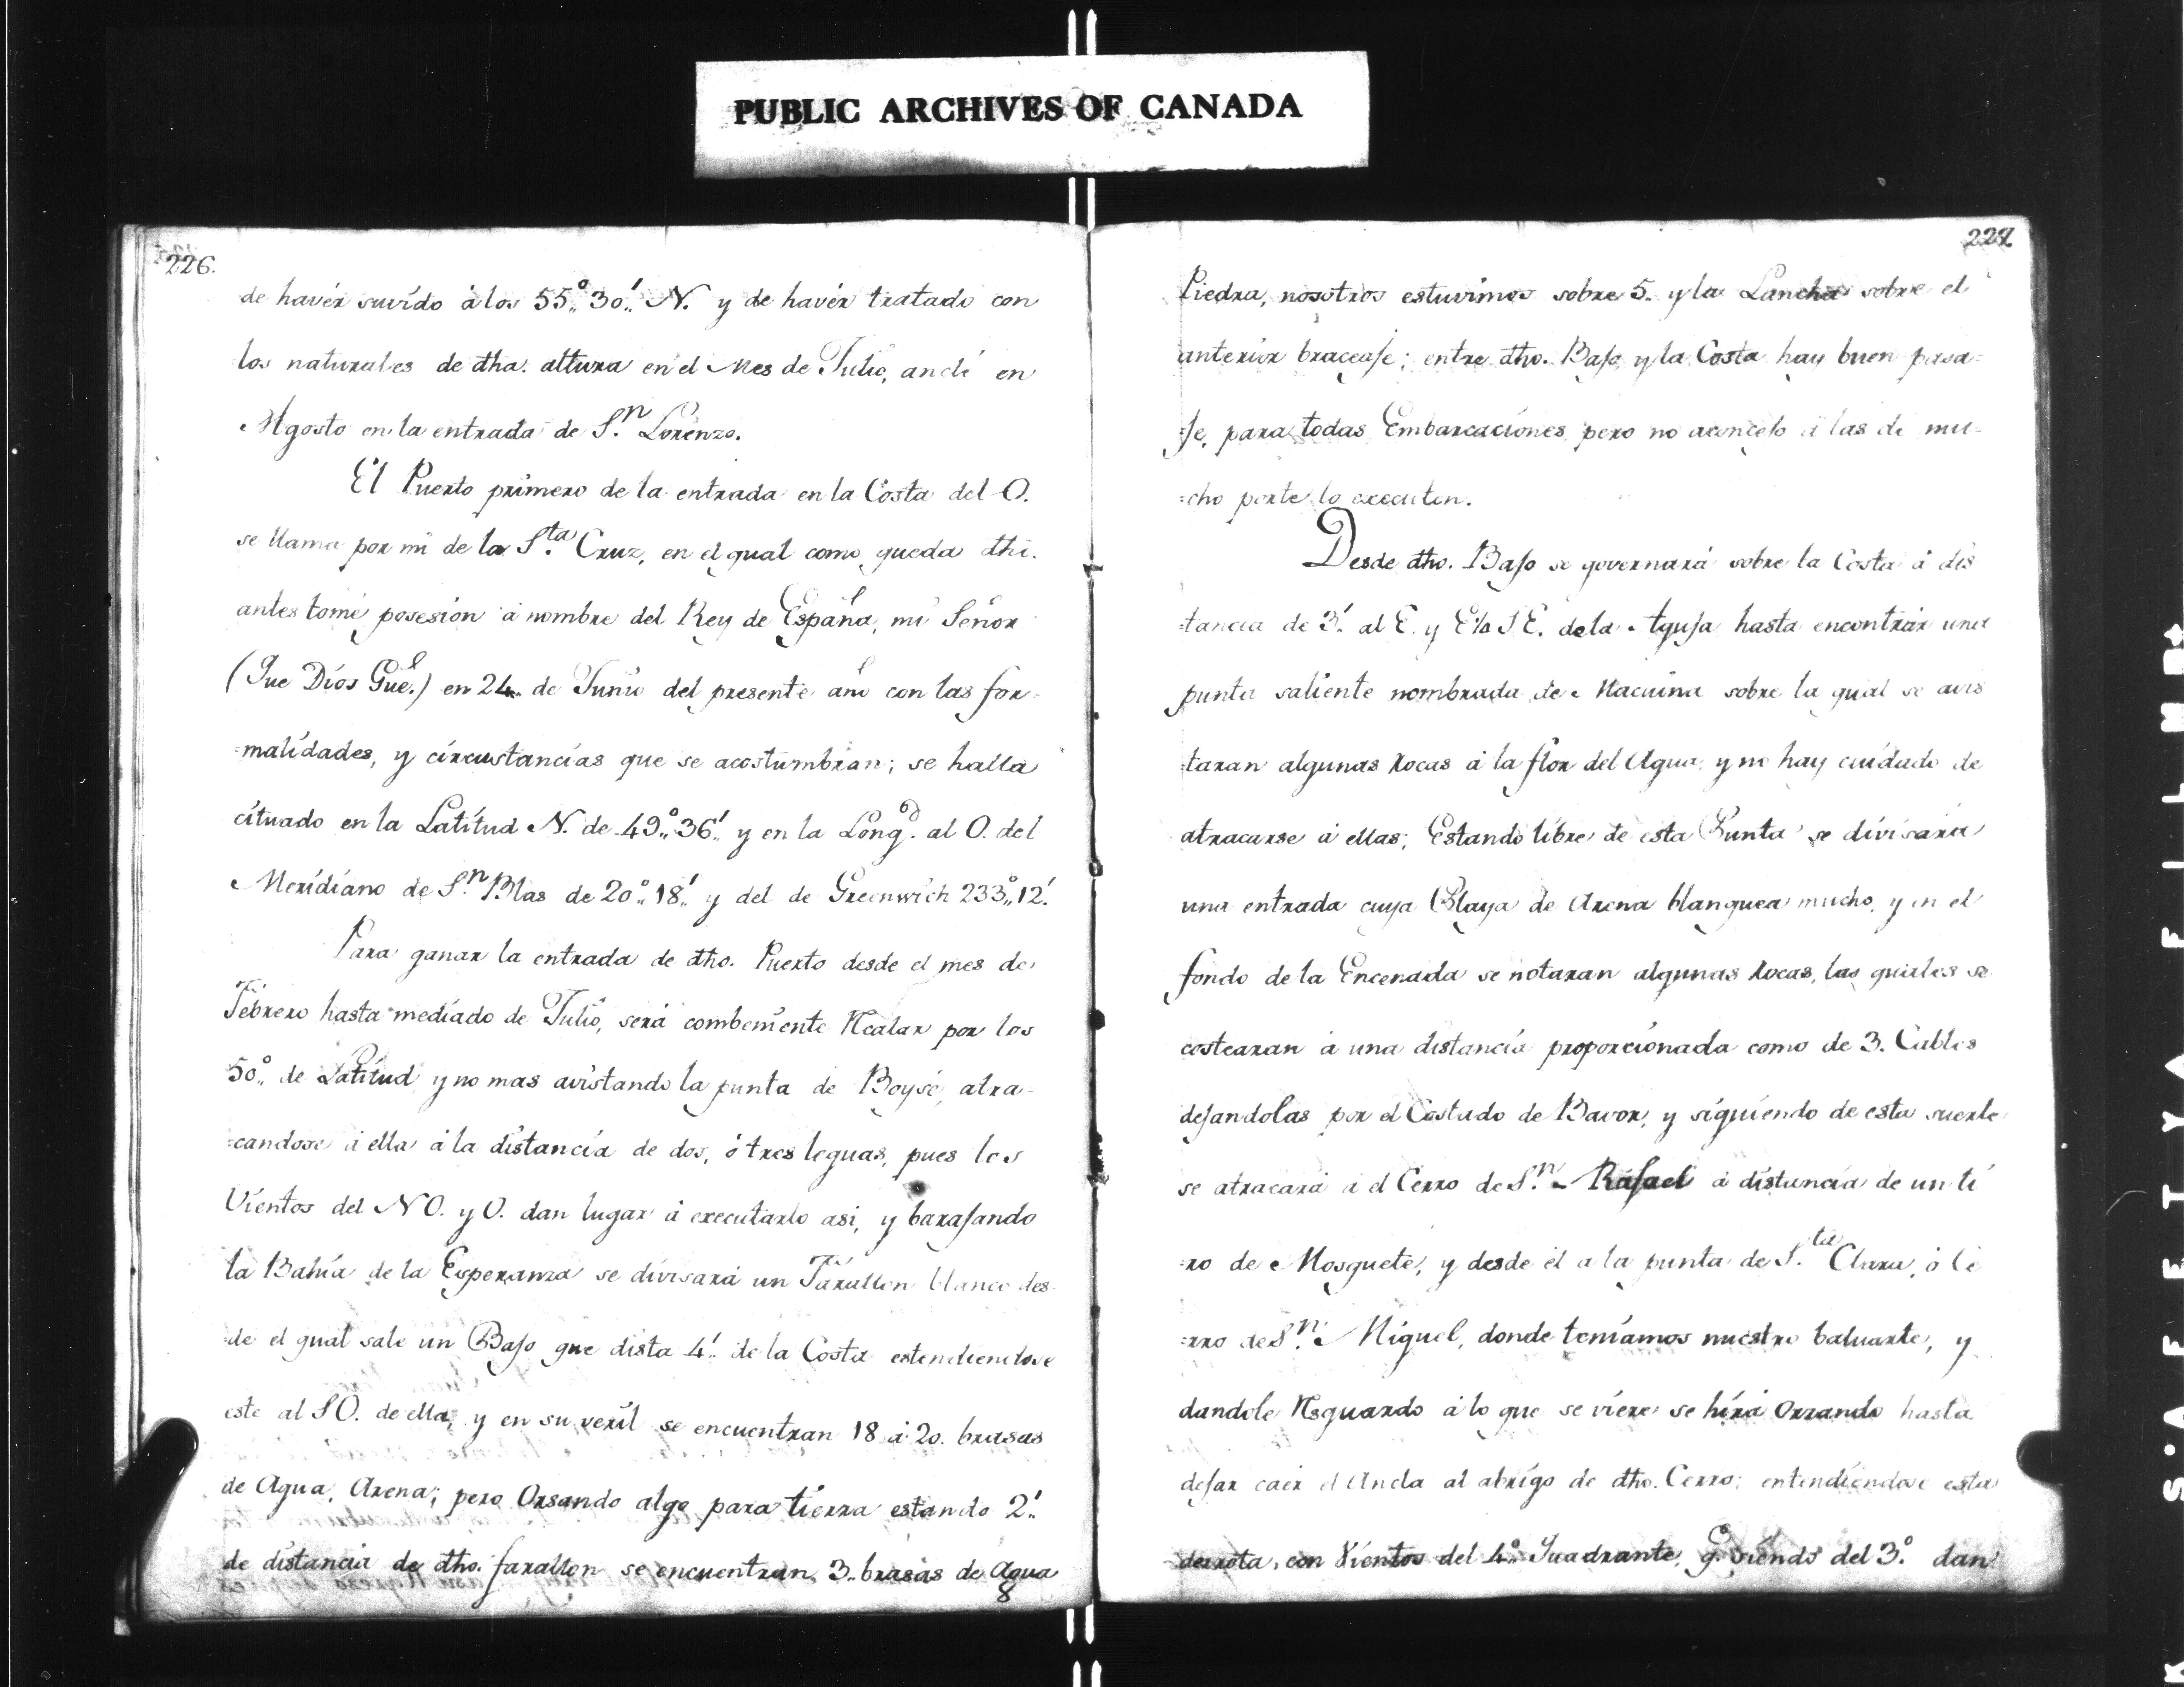 PUBLIC ARCHIVES OF CANADA
226.
de havér suvído á los 55,,° 30,,' N. y de havér tratado con
los naturales de dha. altura en el Mes de Julio, anclé en
Agosto en la entrada de S.n Lorenzo.
El Puerto primero de la entrada en la Costa del O.
se llama por mi de la S.ta Cruz, en el qual como queda dho.
antes tomé posesion á nombre del Rey de España, mi Señor
(Que Díos Gue.) en 24,, de Junio del presente año con las for-
=malídades, y círcustancías que se acostumbran; se halla
cítuado en la Latítud N. de 49,,° 36,,' y en la Long.d al O. del
Merídíano de S.n Blas de 20,,° 18,,' y del de Greenwích 233,,° 12.'
Para ganar la entrada de dho. Puerto desde el mes de
Febrero hasta medíado de Julío, será combeniente Recalar por los
50,,° de Latítud y no mas avístando la punta de Boysé, atra-
=candose á ella á la dístancía de dos, ó tres leguas, pues los
Víentos del NO. y O. dan lugar á executarlo asi, y barajando
la Bahía de la Esperanza se dívisará un Farallon blanco des-
de el qual sale un Bajo que dista 4,,' de la Costa estendiendose
este al SO. de ella, y en su veríl se encuentran 18 á 20. brasas
de Agua, Arena; pero Orsando algo para tíerra estando 2,,'
de distancia de dho. farallon se encuentran 3,, brasas de Agua
8
227.
Piedra, nosotros estuvimos sobre 5,, y la Lancha sobre el
anterior braceaje; entre dho. Bajo y la Costa hay buen pasa=
=je, para todas Embarcacíones, pero no aconcejo á las de mu=
=cho porte lo executen.
Desde dho. Bajo se governará sobre la Costa á dis
=tancia de 3,,' al E. y E¼SE. de la Aguja hasta encontrár una
punta salíente nombrada de Macuina sobre la qual se avis
=taran algunas Rocas á la flor del Agua, y no hay cuídado de
atracarse á ellas; Estando libre de esta Punta se dívisará
una entrada cuya Playa de Arena blanquea mucho, y en el
fondo de la Encenada se notaran algunas Rocas, las quales se
costearan á una distancía proporcíonada como de 3. Cables
dejandolas por el Costado de Bavor, y síguíendo de esta suerte
se atracará á el Cerro de S.n Rafael á dístancía de un ti
=ro de Mosquete, y desde él a la punta de S.ta Clara, ó Ce
=rro de S.n Míguel, donde teníamos nuestro baluarte, y
dandole Resguardo á lo que se viere se hírá Orzando hasta
dejar caer el Ancla al abrígo de dho. Cerro; entendíendose esta
derrota, con Vientos del 4,,° Quadrante, q.e síendo del 3.° dan